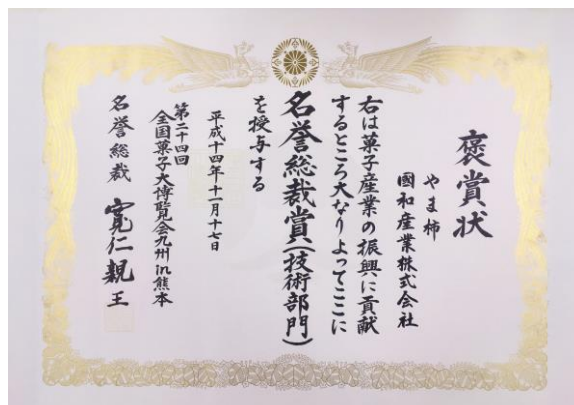 褒賞状
やま柿
國和産業株式会社
右は菓子産業の振興に貢献
するところ大なりよってここに
名誉総裁賞(技術部門)
を授与する
平成十四年十一月十七日
第二十四回
全国菓子大博覧会九州in熊本
名誉総裁 寬仁親王